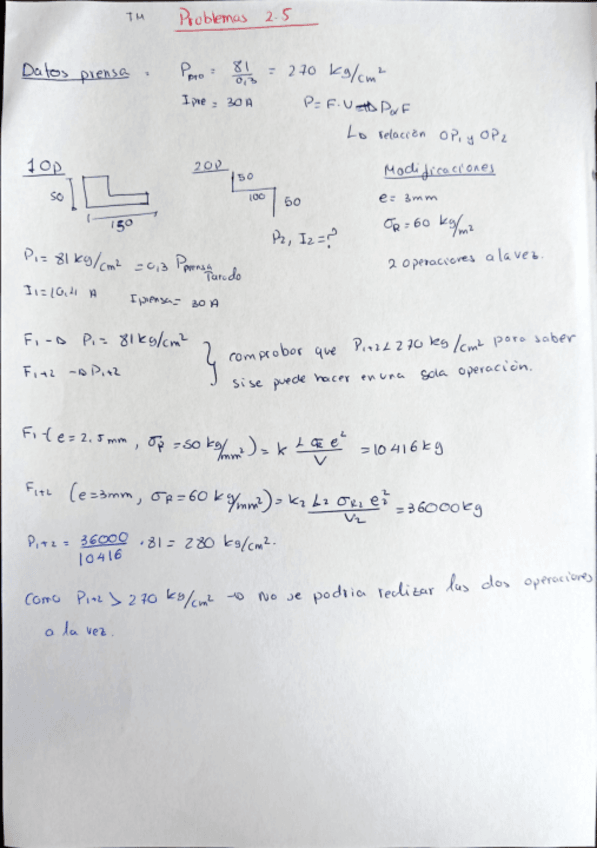 TM Problemas 2.5
Datos prensa: Pmo = 81/0,3 = 270 kg/cm²
Ipre = 30A P = F·V → P α F
↳ relación OP₁ y OP₂
1OP 2OP Modificaciones
50 150 50 100 50 e = 3mm
P₂, I₂ = ? σR = 60 kg/m²
2 operaciones a la vez.
P₁ = 81 kg/cm² = 0,3 Pprensa Tarado
I₁ = 10,41 A Iprensa = 30A
F₁ → P₁ = 81kg/cm²
F₁+₂ → P₁+₂
} comprobar que P₁+₂ < 270 kg/cm² para saber
si se puede hacer en una sola operación.
F₁ (e = 2,5mm, σR = 50 kg/mm²) = k L σR e²/V = 10416kg
F₁+₂ (e=3mm, σR=60 kg/mm²) = k₂ L₂ σR₂ e₂²/V₂ = 36000kg
P₁+₂ = 36000/10416 · 81 = 280 kg/cm².
Como P₁+₂ > 270 kg/cm² → No se podria realizar las dos operaciones
a la vez.